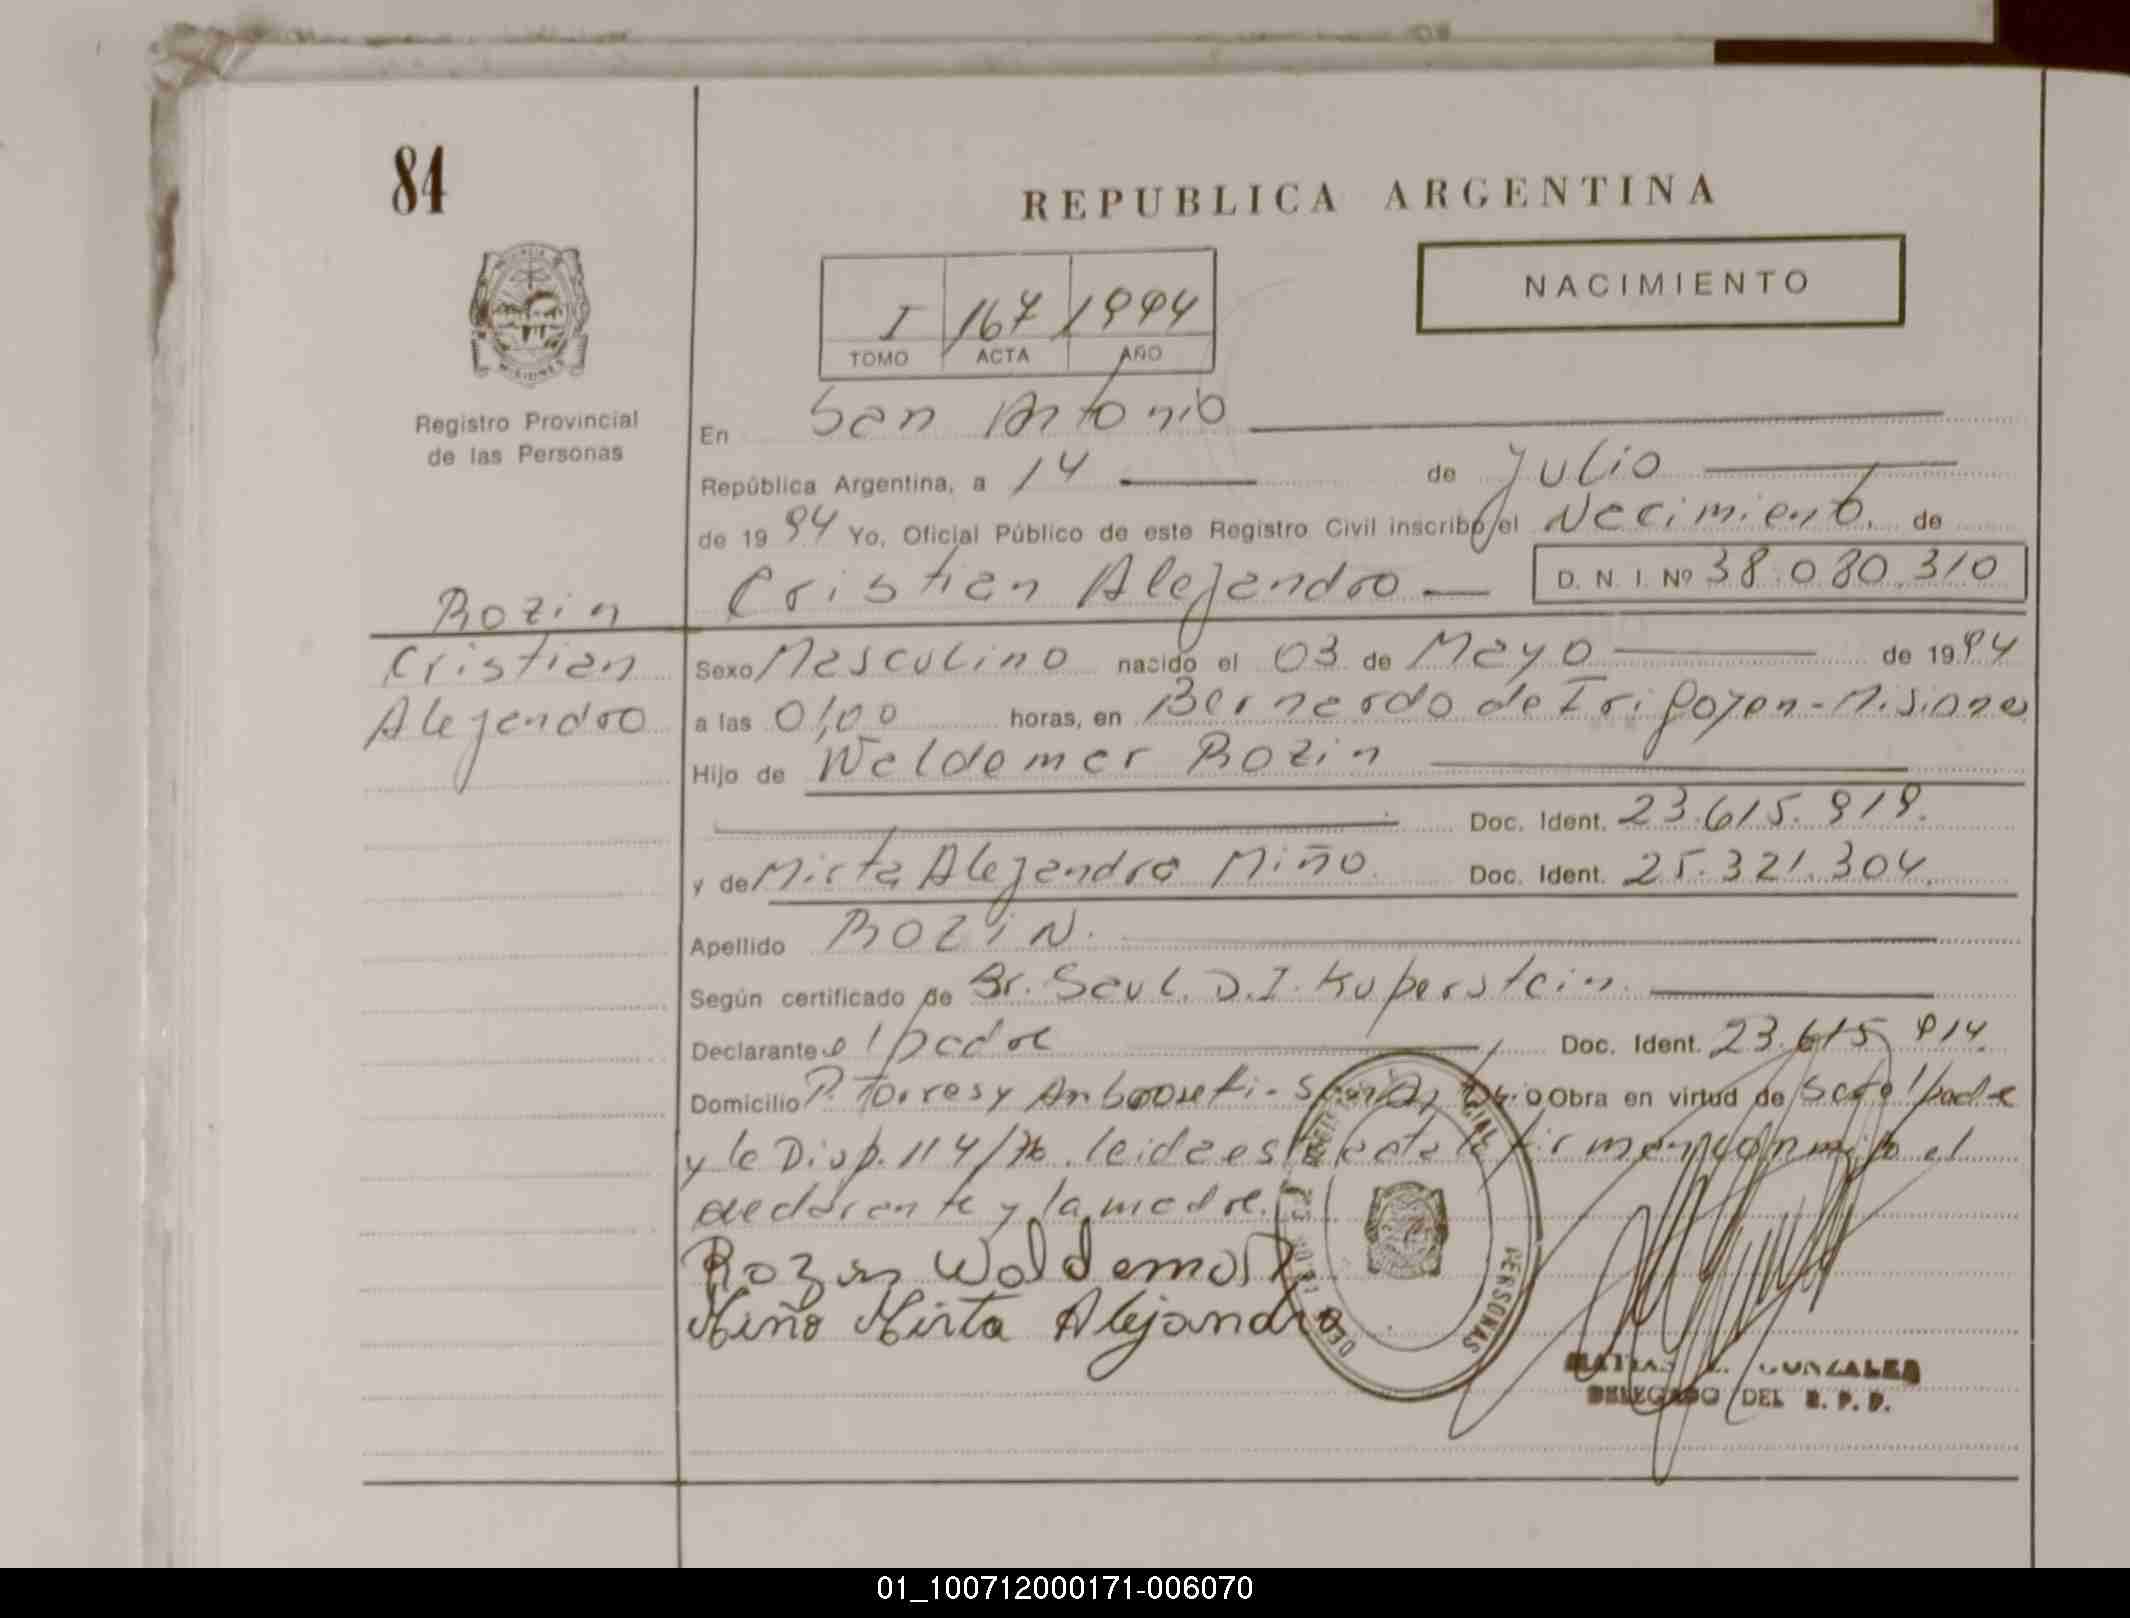 84
REPUBLICA ARGENTINA
NACIMIENTO
I 167 1994
TOMO ACTA AÑO
Registro Provincial
de las Personas
En San Antonio
República Argentina, a 14 de Julio
de 19 94 Yo, Oficial Público de este Registro Civil inscribo el Nacimiento, de
Cristian Alejandro D. N. I. Nº 38.080.310
Rozin
Cristian
Alejandro
Sexo Masculino nacido el 03 de Mayo de 19 94
a las 01,00 horas, en Bernardo de Irigoyen - Misiones
Hijo de Waldemar Rozin
Doc. Ident. 23.615.919.
y de Mirta Alejandra Miño Doc. Ident. 25.321.304.
Apellido ROZIN.
Según certificado de Dr. Saul. D.I. Kuperstein.
Declarante el padre Doc. Ident. 23.615.914.
Domicilio P. Torres y - San Antonio Obra en virtud de ser el padre
y la Disp. 114/76. leida esta acta la firman conmigo el
declarante y la madre.
Rozin Waldemar
Miño Mirta Alejandra
PERSONAS
MATIAS GONZALEZ
DELEGADO DEL R. P. P.
01_100712000171-006070